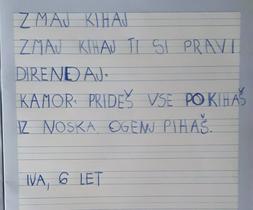 ZMAJ KIHAJ
ZMAJ KIHAJ TI SI PRAVI
DIRENDAJ.
KAMOR. PRIDEŠ VSE POKIHAŠ
IZ NOSKA OGENJ PIHAŠ.
IVA, 6 LET